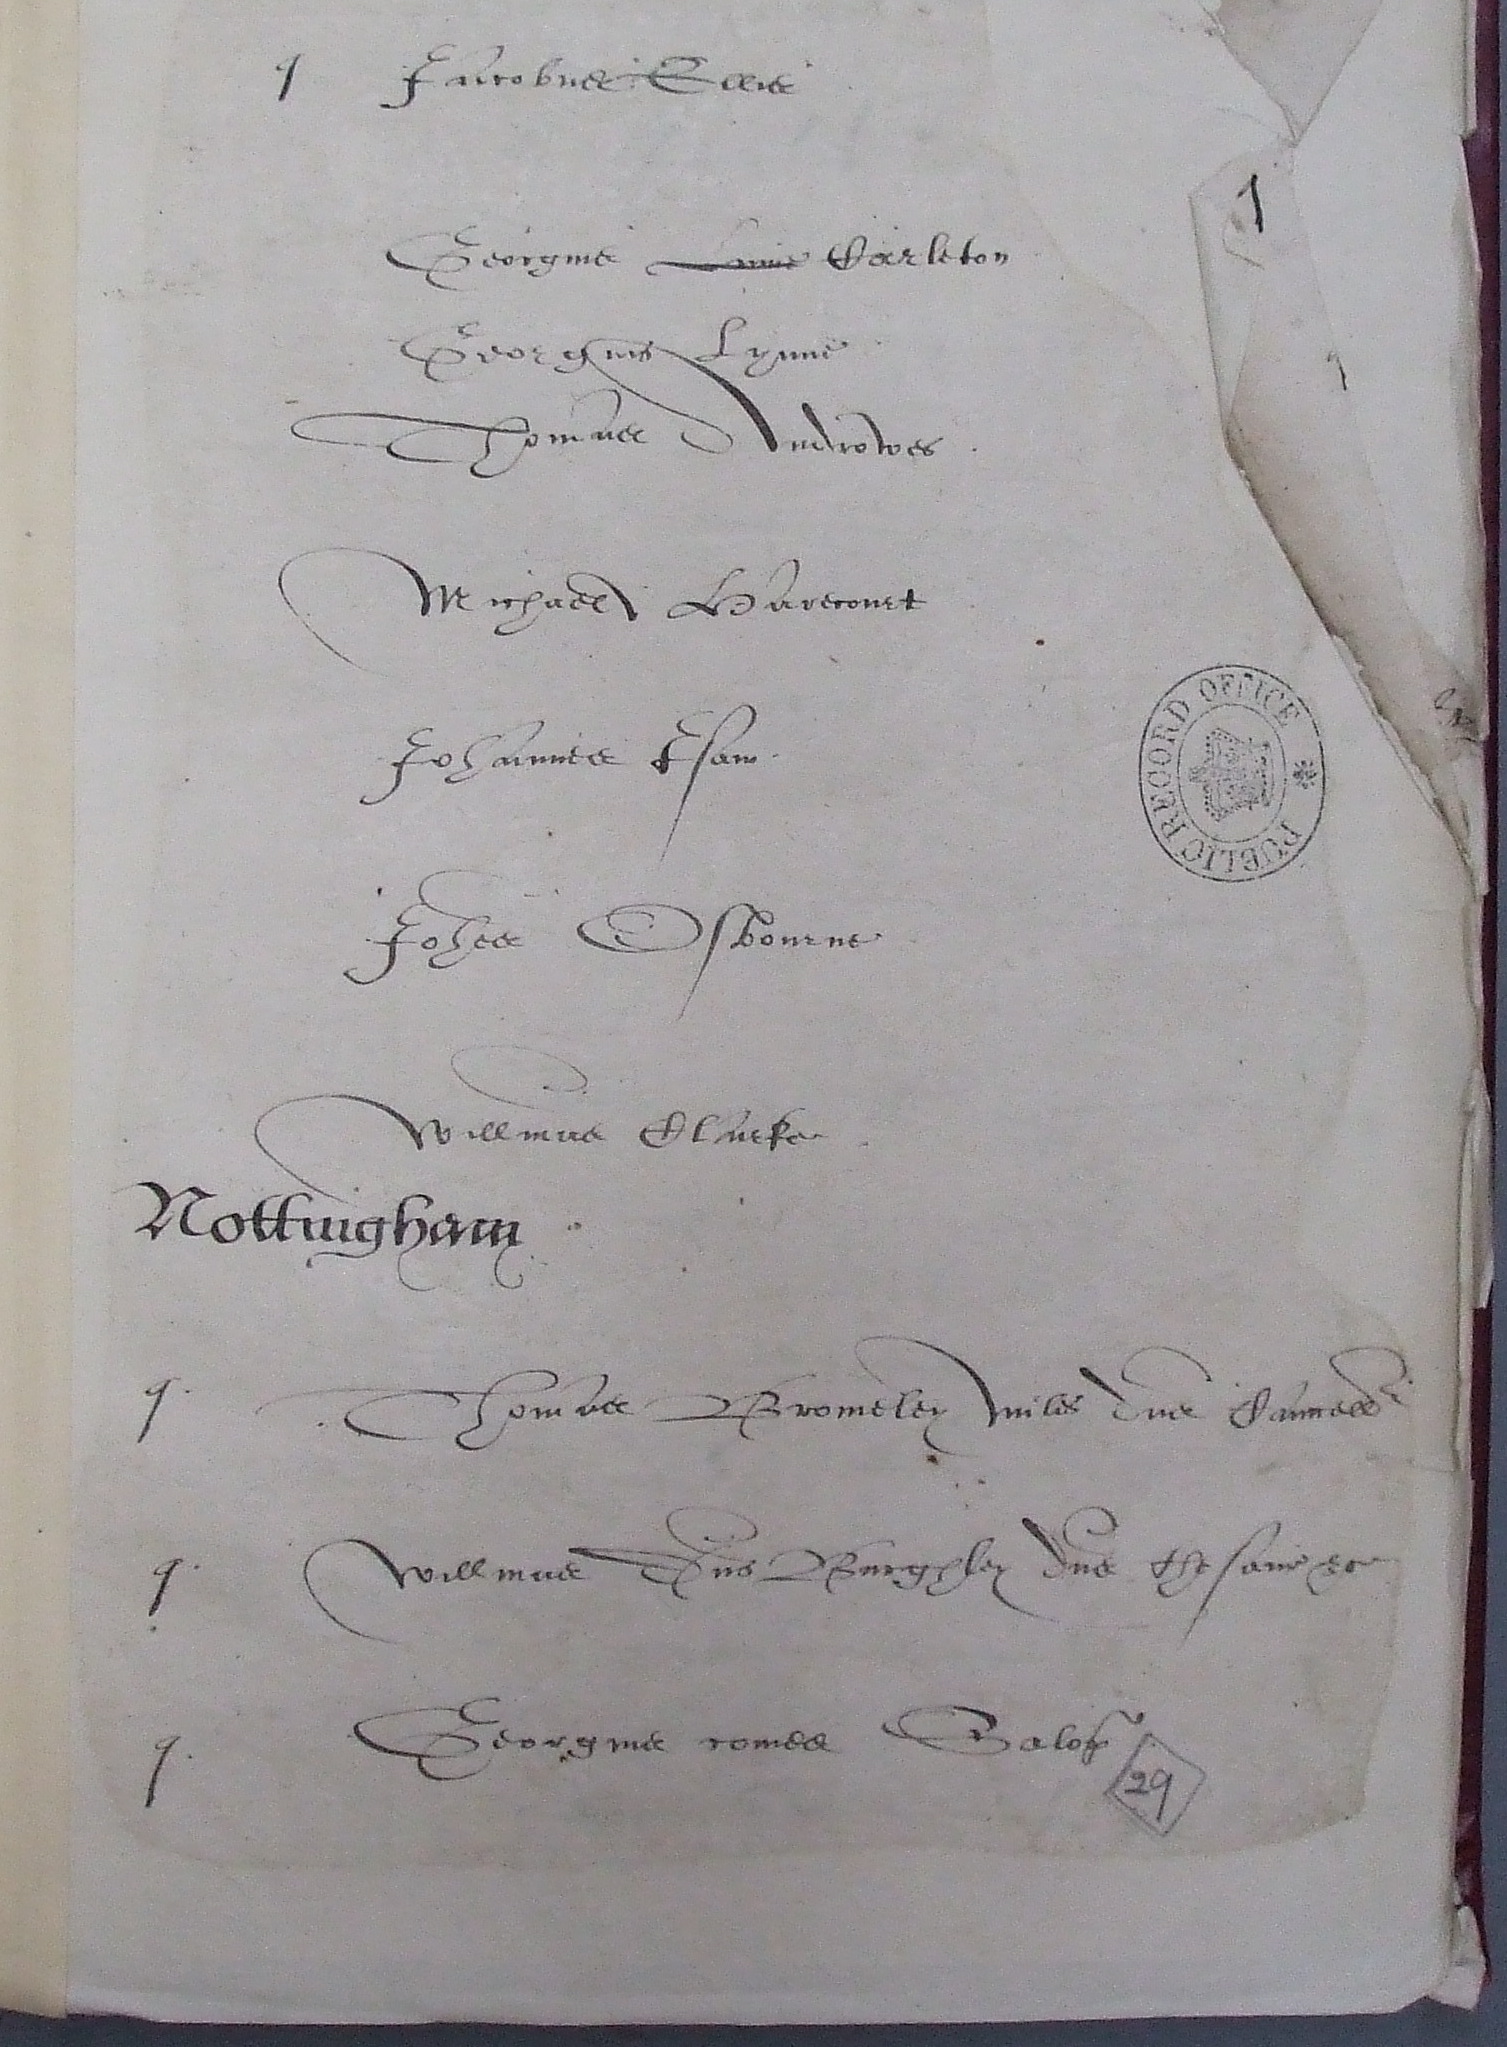 q Jacobus Ellis
Georgius Linne Carleton
Georgius Lynne
Thomas Androwes
Michaell Harecourt
Johannes Isam
Johes Osbourne
Willmus Clarke
Nottingham
q. Thomas Bromeley miles dns Cancell
q. Willmus Dns Burghley dns thesaur
q. Georgius comes Salop
29
PUBLIC RECORD OFFICE